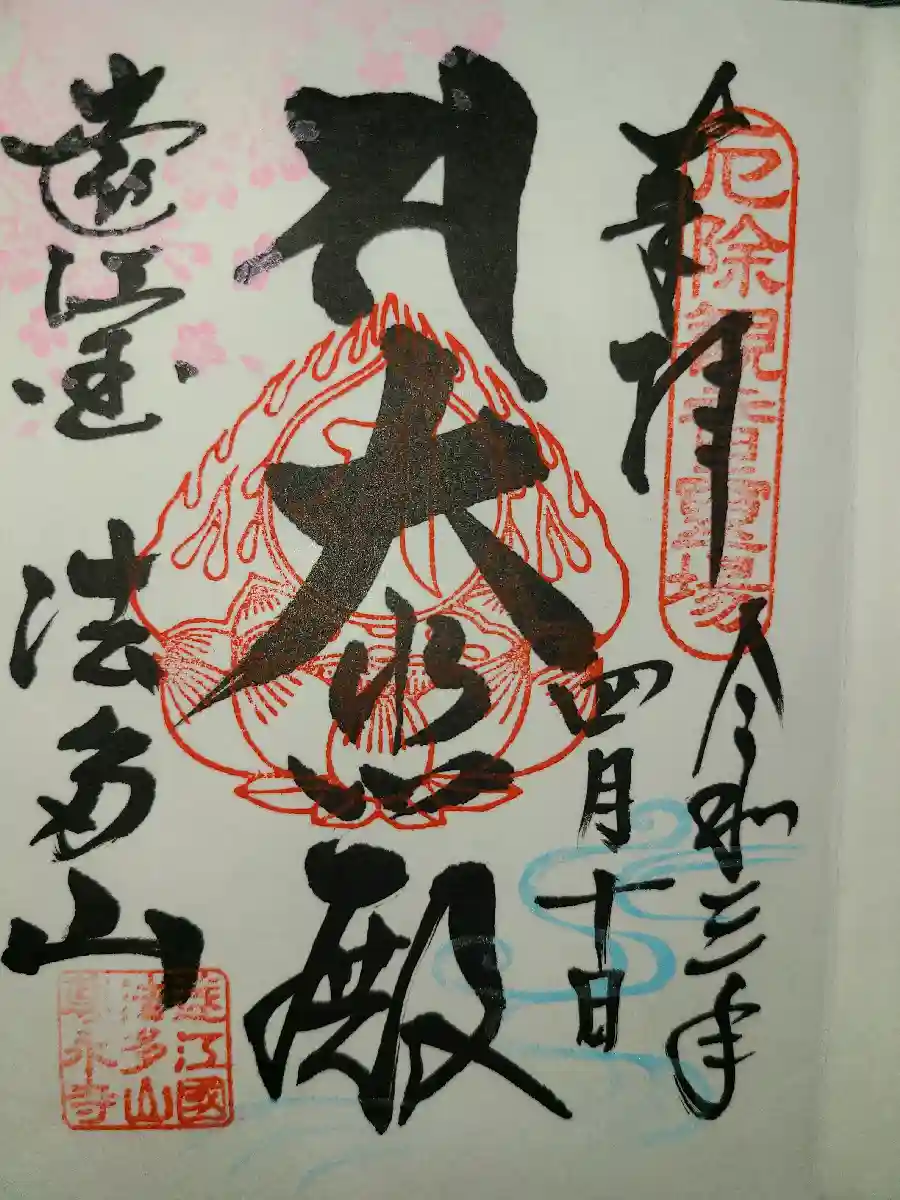 奉拝
厄除観音霊場
令和三年
四月十日
大悲殿
遠江國 法多山
遠江國
法多山
尊永寺